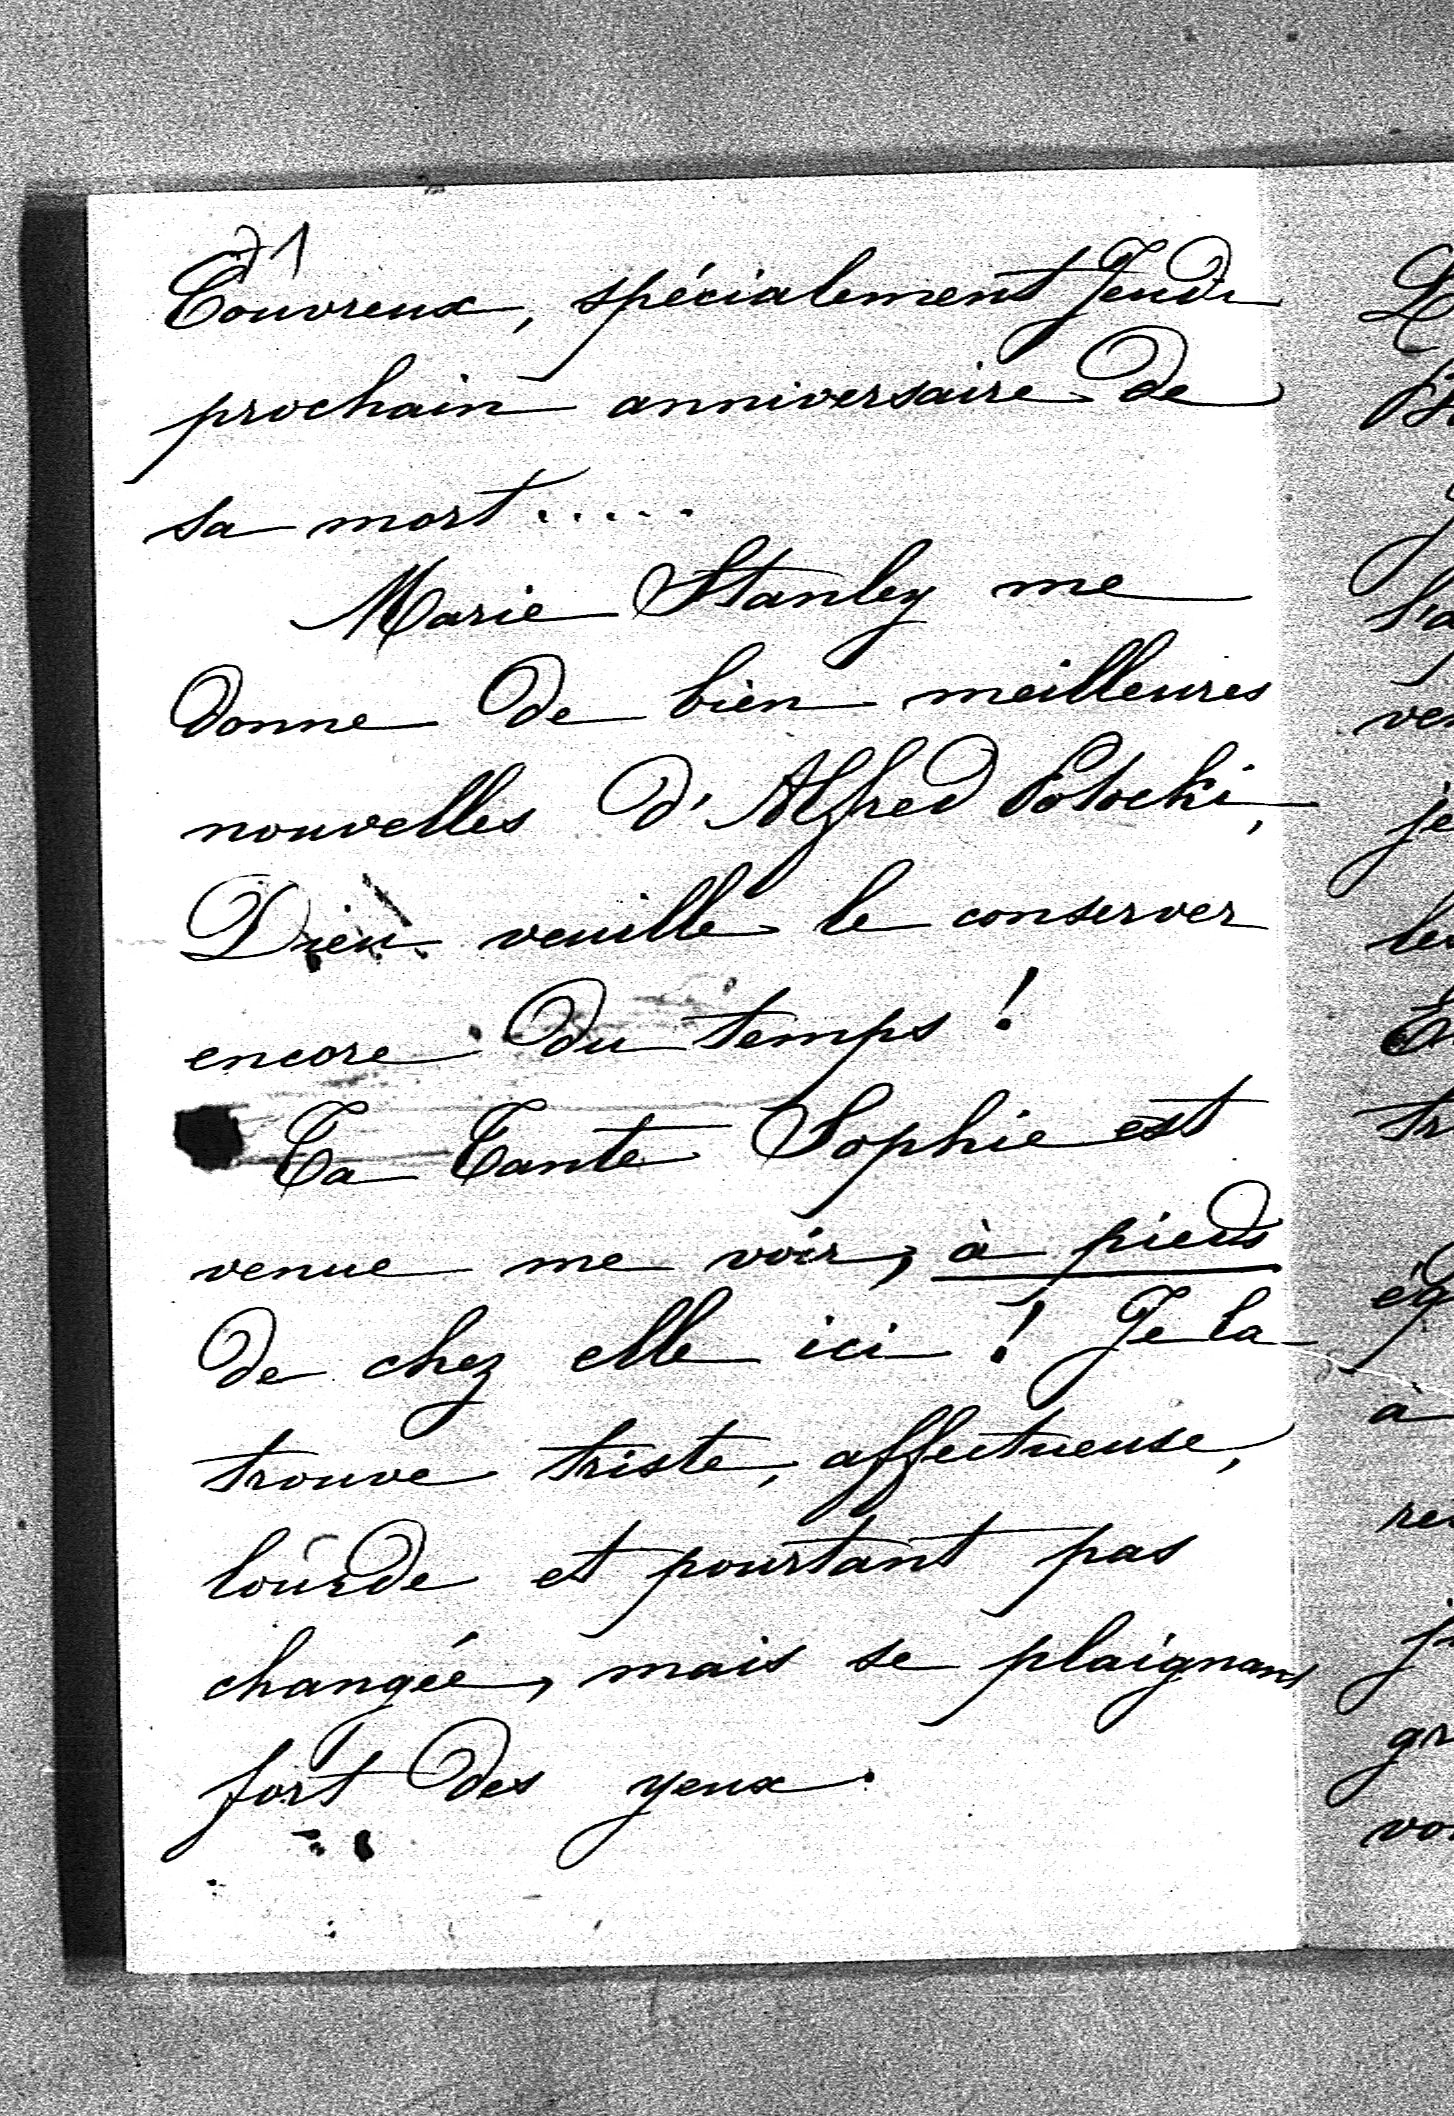 71
Couvreux, spécialement Jeudi
prochain anniversaire de
sa mort.....
Marie Stanley me
donne de bien meilleures
nouvelles d'Alfred Potocki,
Dieu veuille le conserver
encore du temps !
Ta Tante Sophie est
venue me voir, à pieds
de chez elle ici ! Je la
trouve triste, affectueuse,
lourde et pourtant pas
changée, mais se plaignant
fort des yeux.